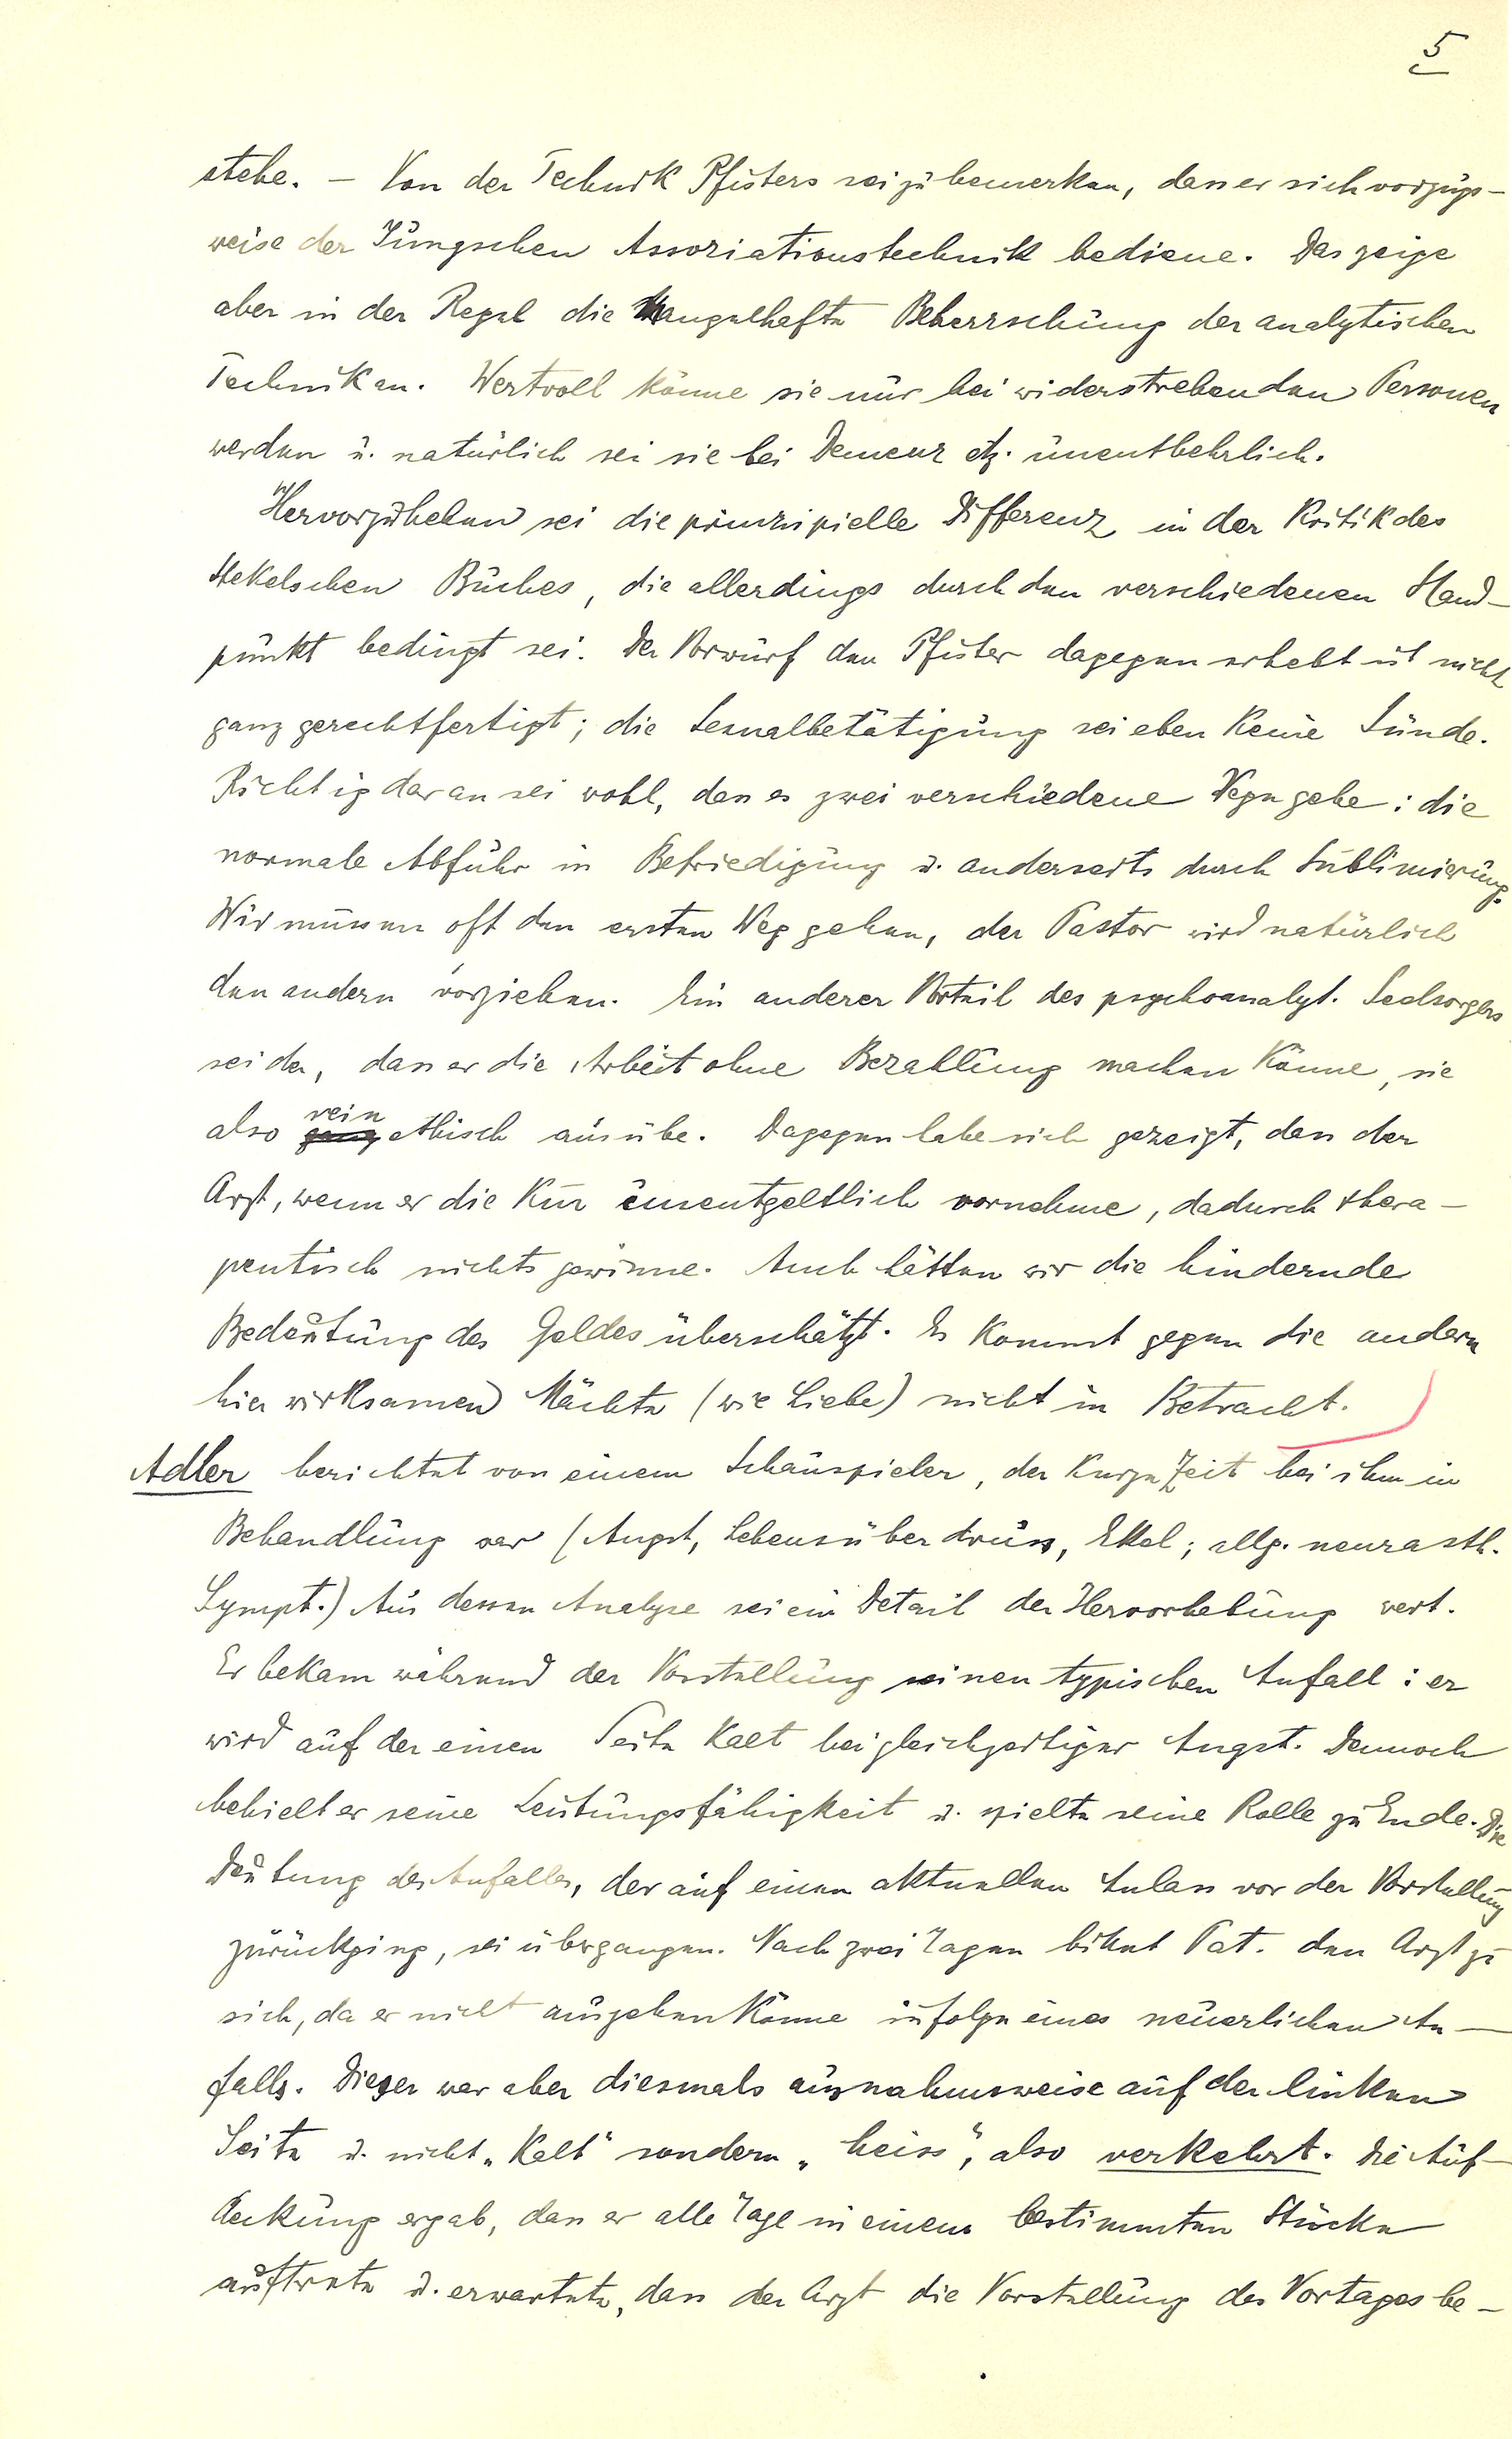 5
stehe. – Von der Technik Pfisters sei zu bemerken, dass er sich vorzugs-
weise der Jungschen Assoziationstechnik bediene. Das zeige
aber in der Regel die mangelhafte Beherrschung der analytischen
Technik an. Wertvoll könne sie nur bei widerstrebenden Personen
werden u. natürlich sei sie bei Demenz etz. unentbehrlich.
Hervorzuheben sei die prinzipielle Differenz in der Kritik des
Stekelschen Buches, die allerdings durch den verschiedenen Stand-
punkt bedingt sei. Der Vorwurf den Pfister dagegen erhebt ist nicht
ganz gerechtfertigt; die Sexualbetätigung sei eben keine Sünde.
Richtig daran sei wohl, dass es zwei verschiedene Wege gebe: die
normale Abfuhr in Befriedigung u. anderseits durch Sublimierung.
Wir müssen oft den ersten Weg gehen, der Pastor wird natürlich
den andern vorziehen. Ein anderer Vorteil des psychoanalyt. Seelsorgers
sei der, dass er die Arbeit ohne Bezahlung machen könne, sie
also rein ethisch ausübe. Dagegen habe sich gezeigt, dass der
Arzt, wenn er die Kur unentgeltlich vornehme, dadurch thera-
peutisch nichts gewinne. Auch hätten wir die hindernde
Bedeutung des Geldes überschätzt. Es kommt gegen die andern
hier wirksamen Mächte (wie Liebe) nicht in Betracht.
Adler berichtet von einem Schauspieler, der kurze Zeit bei ihm in
Behandlung war (Angst, Lebensüberdruss, Ekel; allg. neurasth.
Sympt.) Aus dessen Analyse sei ein Detail der Hervorhebung wert.
Er bekam während der Vorstellung seinen typischen Anfall: er
wird auf der einen Seite kalt bei gleichzeitiger Angst. Dennoch
behielt er seine Leistungsfähigkeit u. spielte seine Rolle zu Ende. Die
Deutung des Anfalles, der auf einen aktuellen Anlass vor der Vorstellung
zurückging, sei übergangen. Nach zwei Tagen bittet Pat. den Arzt zu
sich, da er nicht ausgehen könne infolge eines neuerlichen An-
falls. Dieser war aber diesmals ausnahmsweise auf der linken
Seite u. nicht „kalt" sondern „heiss", also verkehrt. Die Auf-
deckung ergab, dass er alle Tage in einem bestimmten Stücke
auftrete u. erwartete, dass der Arzt die Vorstellung des Vortages be-